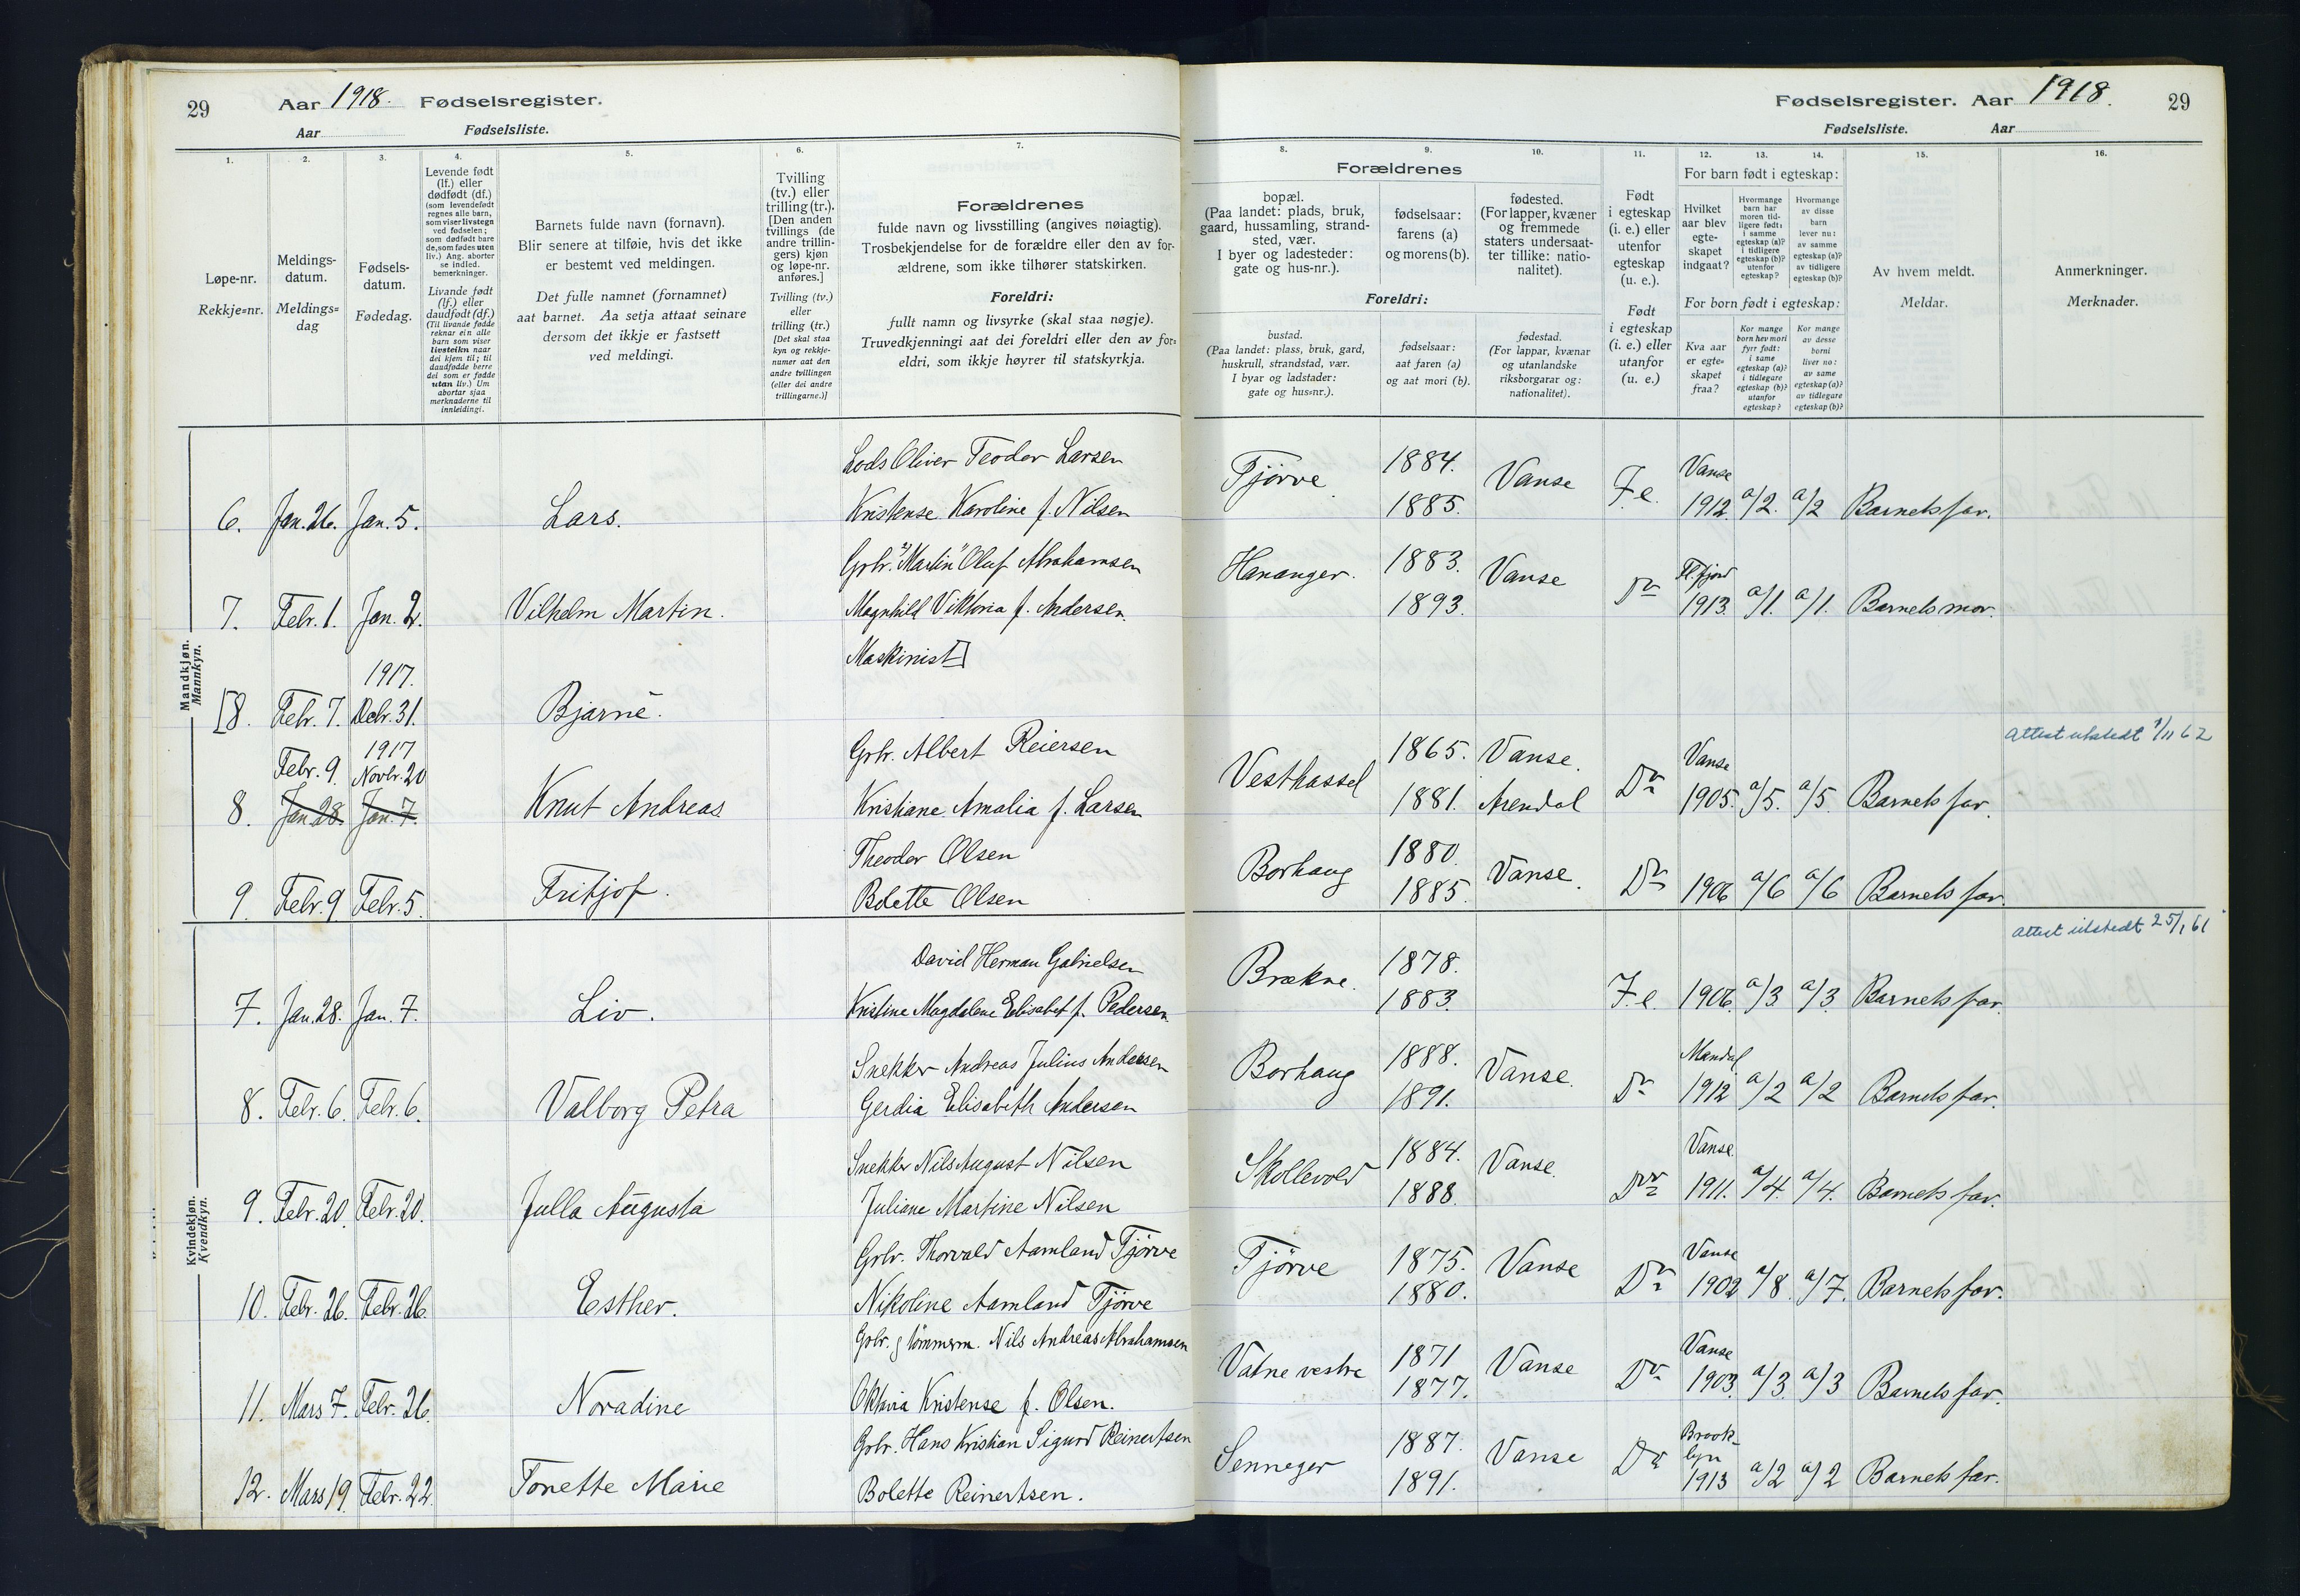 29 Aar 1918. Fødselsregister.
Aar Fødselsliste.
Fødselsregister. Aar 1918. 29
Fødselsliste. Aar
1. 2. 3. 4. 5. 6. 7.
Løpe-nr.
Rekkje=nr.
Meldings-
datum.
Meldings=
dag
Fødsels-
datum.
Fødedag.
Levende født
(lf.) eller
dødfødt (df.)
(som levendefødt
regnes alle barn,
som viser livstegn
ved fødselen;
som dødfødt bare
de, som fødes uten
liv.) Ang. aborter
se indled.
bemerkninger.
Livande født
(lf.) eller
daudfødt (df.)
(Til livande fødde
reknar ein alle
barn som viser
livsteikn naar
dei kjem til; til
daudfødde berre
dei som er fødde
utan liv.) Um
abortar sjaa
merknaderne til
innleidingi.
Barnets fulde navn (fornavn).
Blir senere at tilføie, hvis det ikke
er bestemt ved meldingen.
Det fulle namnet (fornamnet)
aat barnet. Aa setja attaat seinare
dersom det ikkje er fastsett
ved meldingi.
Tvilling
(tv.) eller
trilling (tr.).
[Den anden
tvillings (de
andre trillin-
gers) kjøn
og løpe-nr.
anføres.]
Tvilling (tv.)
eller
trilling (tr.)
[Det skal staa
kyn og rekkje-
numer aat den
andre tvillingen
(eller dei andre
trillingarne.)]
Forældrenes
fulde navn og livsstilling (angives nøiagtig).
Trosbekjendelse for de forældre eller den av for-
ældrene, som ikke tilhører statskirken.
Foreldri:
fullt namn og livsyrke (skal staa nøgje).
Truvedkjenningi aat dei foreldri eller den av for=
eldri, som ikkje høyrer til statskyrkja.
8. 9. 10. 11. 12. 13. 14. 15. 16.
Forældrenes
bopæl.
(Paa landet: plads, bruk,
gaard, hussamling, strand-
sted, vær.
I byer og ladesteder:
gate og hus-nr.).
fødselsaar:
farens (a)
og morens (b).
fødested.
(For lapper, kvæner
og fremmede
staters undersaat-
ter tillike: natio-
nalitet).
Foreldri:
bustad.
(Paa landet: plass, bruk, gard,
huskrull, strandstad, vær.
I byar og ladstader:
gate og hus=nr.).
fødselsaar:
aat faren (a)
og aat mori (b).
fødestad.
(For lappar, kvænar
og utanlandske
riksborgarar og:
nationalitet).
Født
i egteskap
(i. e.) eller
utenfor
egteskap
(u. e.).
Født
i egteskap
(i. e.) eller
utanfor
(u. e.)
For barn født i egteskap:
Hvilket
aar blev
egte-
skapet
indgaat?
Hvormange
barn har
moren tid-
ligere født:
i samme
egteskap (a)?
i tidligere
egteskap (b)?
utenfor
egteskap?
Hvormange
av disse
barn
lever nu:
av samme
egteskap (a)?
av tidligere
egteskap (b)?
For born født i egteskap:
Kva aar
er egte=
skapet
fraa?
Kor mange
born hev mori
fyrr født:
i same
egteskap (a)?
i tidlegare
egteskap (b)?
utanfor
egteskap?
Kor mange
av desse
borni
liver no:
av same
egteskap (a)?
av tidlegare
egteskap (b)?
Av hvem meldt.
Meldar.
Anmerkninger.
Merknader.
Mandkjøn.
Mannkyn.
Lods Oliver Teodor Larsen Tjörve. 1884. Vanse F. e. Vanse
6. Jan. 26. Jan. 5. Lars. Kristense Karoline f. Nilsen 1885. 1912. a/2. a/2 Barnets far.
Grbr. "Martin" Oluf Abrahamsen Hananger. 1883. Vanse Do Fl.fjord
7. Febr. 1. Jan. 2. Vilhelm Martin. Magnhild Viktoria f. Andersen. 1893. 1913. a/1. a/1. Barnets mor.
1917. Maskinist]
[8. Febr. 7. Debr. 31. Bjarne.
Attest utstedt 1/11 62
Febr. 9. 1917 Novbr. 20 Grbr. Albert Reiersen Vesthassel 1865. Vanse. Do Vanse
8. Jan 28. Jan. 7. Knut Andreas Kristiane Amalia f. Larsen 1881. Arendal 1905. a/5. a/5 Barnets far.
Theodor Olsen Borhaug 1880. Vanse. Do
9. Febr. 9 Febr. 5. Fritjof. Bolette Olsen 1885. 1906 a/6 a/6 Barnets far.
Attest utstedt 25/1 61
Kvindekjøn.
Kvendkyn.
David Herman Gabrielsen Brækne. 1878. F. e.
7. Jan. 28. Jan. 7. Liv. Kristine Magdalene Elisabet f. Pedersen. 1883. 1906. a/3 a/3. Barnets far.
Snekker Andreas Julius Andersen Borhaug 1888. Vanse. Do Mandal
8. Febr. 6. Febr. 6. Valborg Petra Gerdia Elisabeth Andersen 1891. 1912 a/2 a/2 Barnets far.
Snekker Nils August Nilsen Skollevold 1884. Vanse. Do Vanse.
9. Febr. 20. Febr. 20. Julla Augusta Juliane Martine Nilsen 1888. 1911. a/4. a/4. Barnets far.
Grbr. Thorvald Aamland Tjörve Tjörve 1875. Vanse Do Vanse
10. Febr. 26. Febr. 26. Esther. Nikoline Aamland Tjörve 1880. 1902 a/8. a/7. Barnets far.
Grbr. g tömmerm. Nils Andreas Abrahamsen Vatne vestre 1871 Vanse Do Vanse
11. Mars 7. Febr. 26. Noradine Oktavia Kristense f. Olsen. 1877. 1903. a/3. a/3 Barnets far.
Grbr. Hans Kristian Sigurd Reinertsen Senneger 1887. Vanse Do Brook-
lyn
12. Mars 19. Febr. 22. Tonette Marie Bolette Reinertsen. 1891. 1913 a/2 a/2 Barnets far.